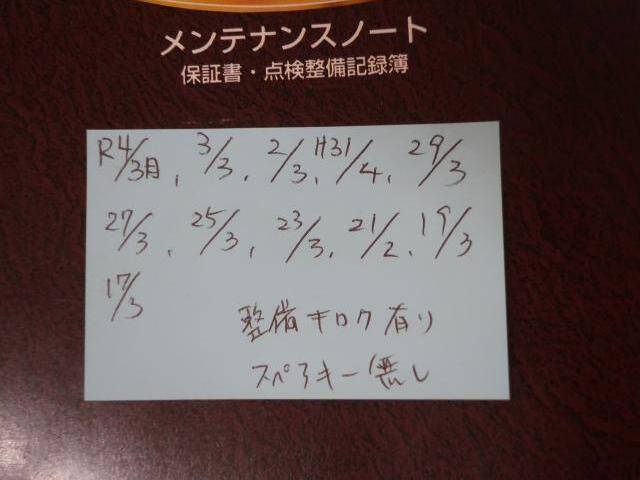 メンテナンスノート
保証書・点検整備記録簿
R4/3月、3/3、2/3、H31/4、29/3
27/3、25/3、23/3、21/2、19/3
17/3
整備キロク有り
スペアキー無し